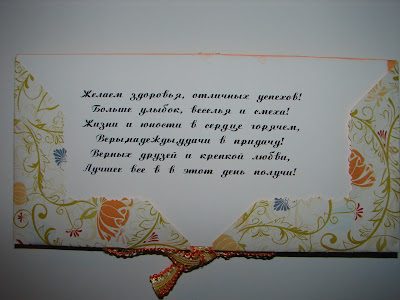 Желаем здоровья, отличных успехов!
Больше улыбок, веселья и смеха!
Жизни и юности в сердце горячем,
Веры,надежды,удачи в придачу!
Верных друзей и крепкой любви,
Лучшее все в в этот день получи!